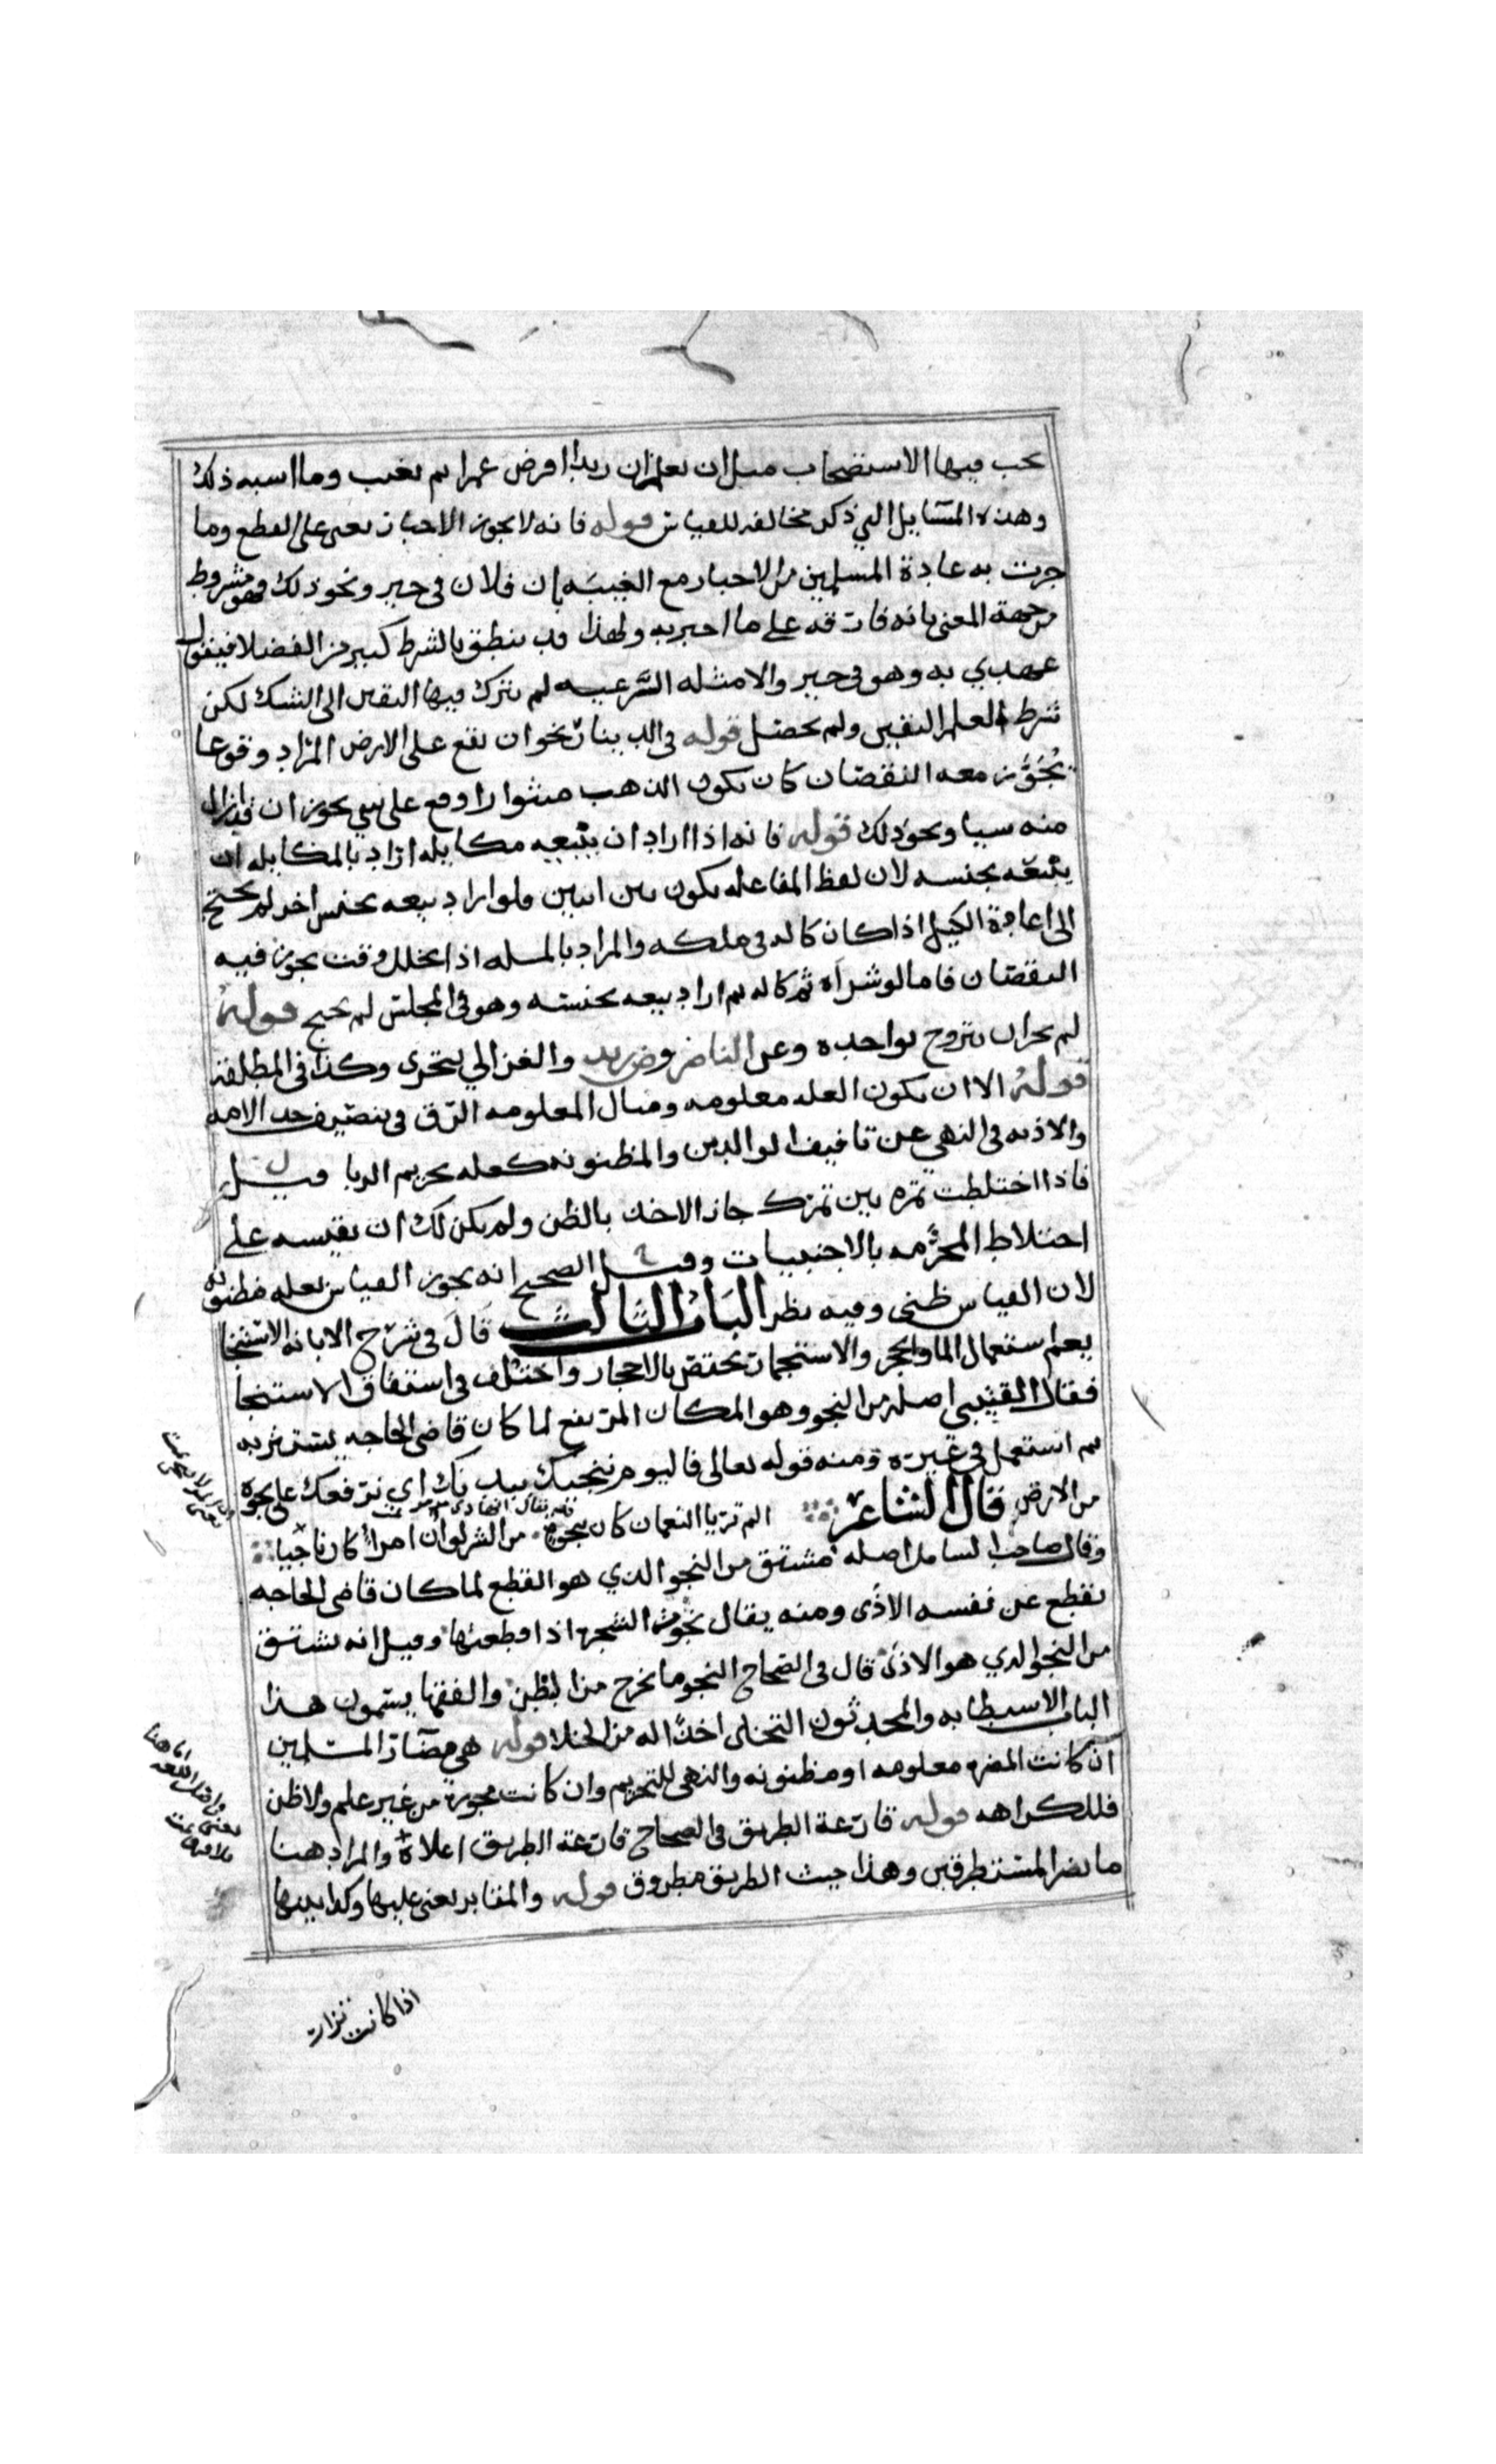 يجب فيها الاستصحاب مثل ان يعلم ان زيدا اقرض عمرا ثم يغيب وما اشبه ذلك
وهذه المسايل التي ذكر مخالفه للقياس قوله فانه لا يجوز الاخبار يعني على القطع وما
جرت به عادة المسلمين من الاخبار مع الغيبه بان فلان في خير ونحو ذلك فهو مشروط
من جهة المعنى بانه فارقه على ما اخبر به ولهذا قد ينطق بالشرط كثير من الفضلا فيقول
عهدي به وهو في خير والامثله الشرعيه لم يترك فيها اليقين الى الشك لكن
شرط العلم اليقين ولم يحصل قوله في الدينار نحو ان يقع على الارض المراد وقوعا
يجوز معه النقصان كان يكون الذهب منثوا را وقع على شي يجوز ان قد ازال
منه شيا ونحو ذلك قوله فانه اذا اراد ان يبيعه مكايله اراد بالمكايله ان
يبيعه بجنسه لان لفظ المفاعله يكون بين اثنين ولو اراد بيعه بجنس اخر لم يحتج
الى اعادة الكيل اذا كان كاله في ملكه والمراد بالمسله اذا تخلل وقت يجوز فيه
النقصان فاما لو شراه ثم كاله ثم اراد بيعه بجنسه وهو في المجلس لم يحتج قوله
لم يجز ان يتزوج بواحده وعن الناصر وض زيد والغزالي يتحرى وكذا في المطلقه
قوله الا ان يكون العله معلومه ومثال المعلومه الرق في تنصيف حد الامه
والاذيه في النهي عن تافيف الوالدين والمظنونه كعله تحريم الربا قيل
فاذا اختلطت تمره بين تمرك جاز الاخذ بالظن ولم يكن لك ان تقيسه على
اختلاط المحرمه بالاجنبيات وقيل الصحيح انه يجوز القياس بعله مظنونه
لان القياس ظني وفيه نظر الباب الثالث قال في شرح الابانه الاستنجا
يعم استعمال الما والحجر والاستجمار يختص بالاحجار واختلف في اشتقاق الاستنجا
فقال القتيبي اصله من النجو وهو المكان المرتفع لما كان قاضي الحاجه يستتر به
ثم استعمل في غيره ومنه قوله تعالى فاليوم ننجيك ببدنك اي نرفعك على نجوة
من الارض قال الشاعر الم تريا النعمان كان بنجوة من الشر لو ان امرأ كان ناجيا
وقال صاحب الشامل اصله مشتق من النجو الذي هو القطع لما كان قاضي الحاجه
يقطع عن نفسه الاذى ومنه يقال نجوت الشجره اذا قطعتها وقيل انه مشتق
من النجو الذي هو الاذى قال في الصحاح النجو ما يخرج من البطن والفقها يسمون هذا
الباب الاستطابه والمحدثون التخلي اخذا له من الخلا قوله هي مضار المسلمين
ان كانت المضره معلومه او مظنونه والنهي للتحريم وان كانت مجوزه من غير علم ولا ظن
فللكراهه قوله قارعة الطريق في الصحاح قارعة الطريق اعلاه والمراد هنا
ما يضر المستطرقين وهذا حيث الطريق مطروق قوله والمقابر يعني عليها وكذا بينها
اذا كانت تزار